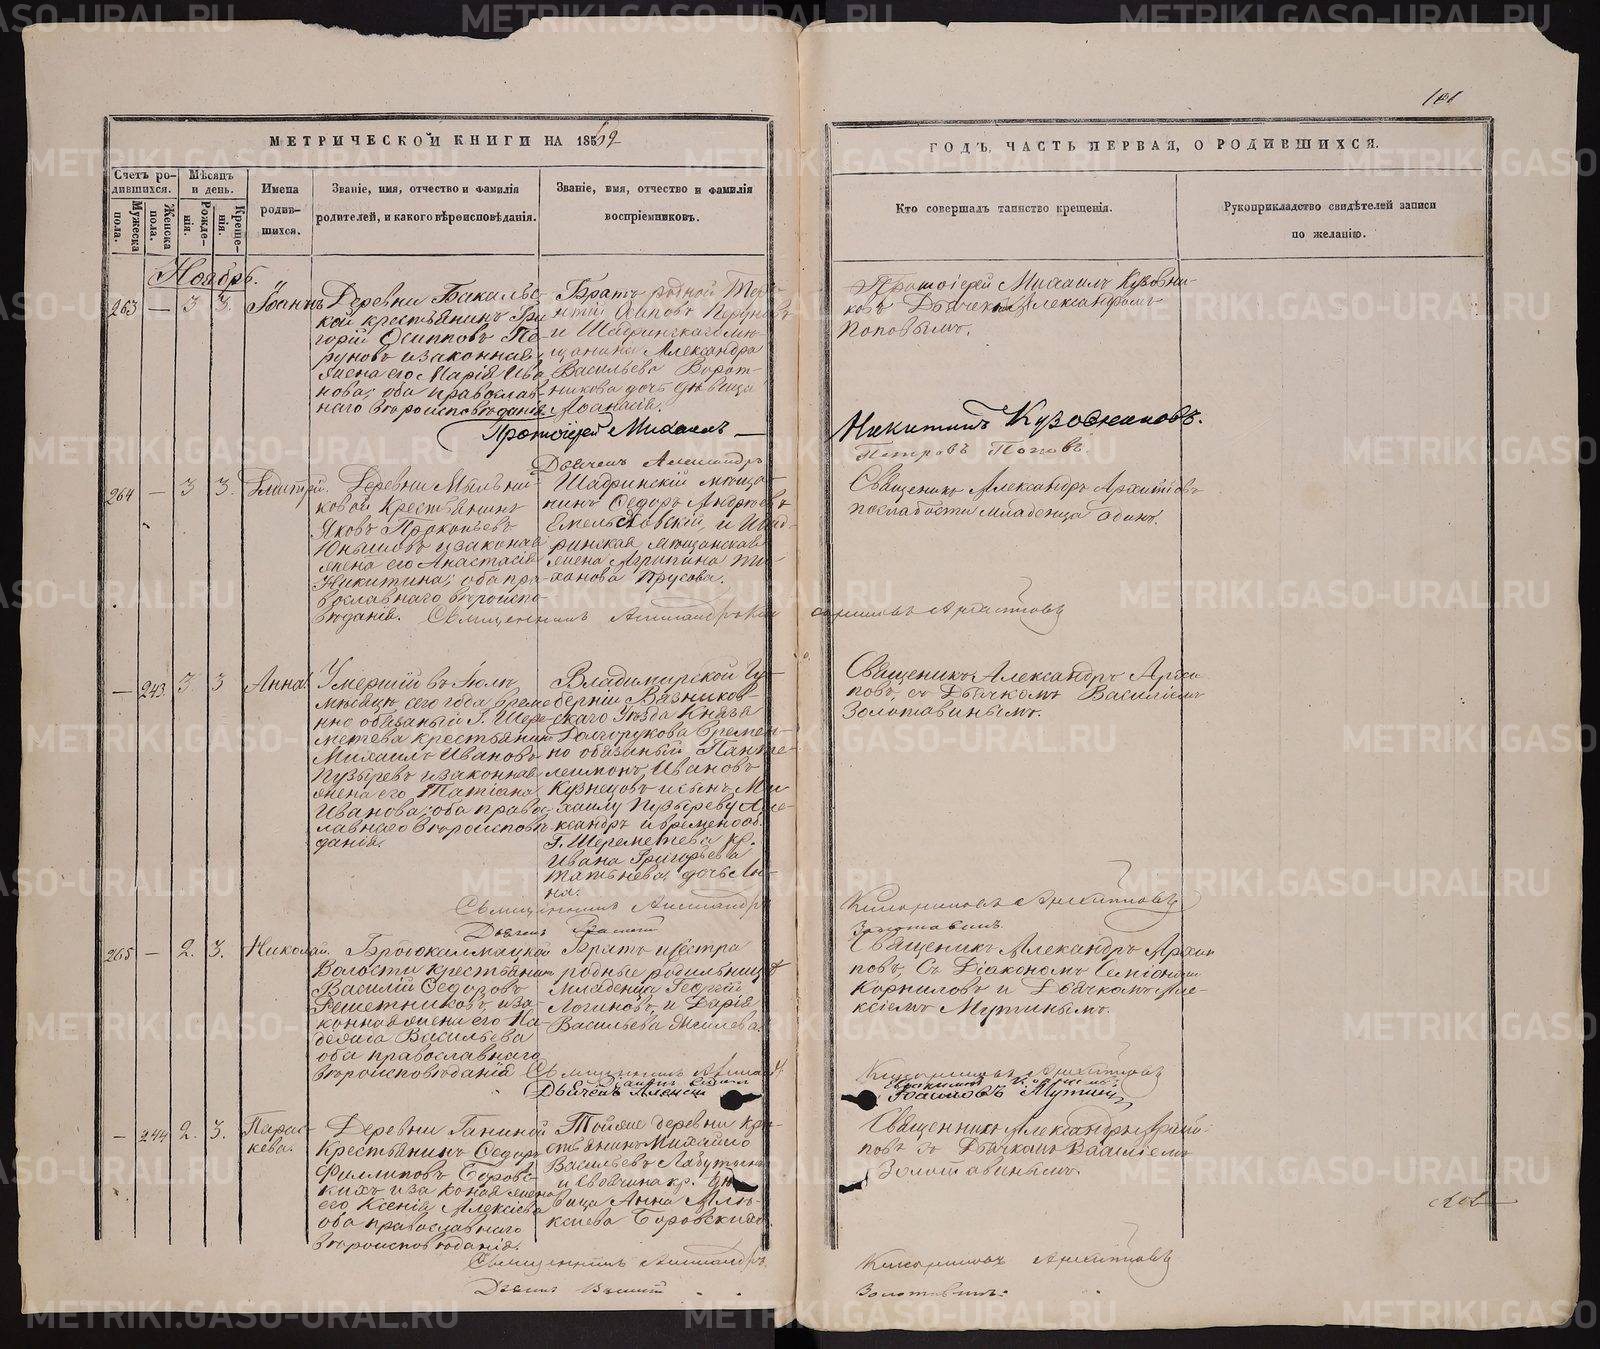 МЕТРИЧЕСКОЙ КНИГИ НА 1862
ГОДЪ, ЧАСТЬ ПЕРВАЯ, О РОДИВШИХСЯ.
Счетъ ро-
дившихся.
Мужеска
пола.
Женска
пола.
Мѣсяцъ
и день.
Рожде-
нія.
Креще-
нія.
Имена
родив-
шихся.
Званіе, имя, отчество и фамилія
родителей, и какого вѣроисповѣданія.
Званіе, имя, отчество и фамилія
воспріемниковъ.
Кто совершалъ таинство крещенія.
Рукоприкладство свидѣтелей записи
по желанію.
Ноябрь.
263 — 3 3. Іоаннъ
Деревни Бакальс-
кой крестьянинъ Гри
горій Осиповъ Пе-
руновъ и законная
жена его Марія Ива
нова; оба православ
наго вѣроисповѣданія.
Братъ родной
Осиповъ Перуновъ
и Шадринскаго мѣ-
щанина Александра
Васильева Ворот-
никова дочь дѣвица
Аѳанасія.
Протоіерей Михаилъ Кузовни-
ковъ Дьячкомъ Александромъ
Поповымъ.
Протоіерей Михаилъ —
Никитинъ Кузовниковъ.
Дьячекъ Александръ
Петровъ Поповъ.
264 — 3 3. Дмитрій.
Деревни Мыльни-
ковой Крестьянинъ
Яковъ Прокопьевъ
Юньшовъ и законая
жена его Анастасія
Никитина; оба пра-
вославнаго вѣроиспо-
вѣданія.
Шадринскій мѣща-
нинъ Ѳедоръ Андреевъ
и Шад-
ринская мѣщанская
жена Агрипина Ти-
ханова Трусова.
Священикъ Александръ Архиповъ
по слабости младенца одинъ.
Священникъ Александръ
Архиповъ
— 243. 3 3 Анна.
Умершій въ Іюлѣ
мѣсяцѣ сего года, време
нно обязаный Г. Шере-
метева крестьянинъ
Михаилъ Ивановъ
Пузыревъ и законная
жена его Татіана
Иванова; оба правос
лавнаго вѣроисповѣ
данія.
Владимірской Гу-
берніи Вязников-
скаго Уѣзда Князя
Долгорукова времен-
но обязаный Панте-
леимонъ Ивановъ
Кузнецовъ и сынъ Ми
хаилу Пузыреву Але-
ксандръ и временооб.
Г. Шереметева кр.
Ивана Григорьева
дочь Ан-
на.
Священикъ Александръ Архи
повъ, съ Дьячкомъ Василіемъ
Золотавинымъ.
Священникъ Александръ
Архиповъ
Дьячекъ Василій
Золотавинъ.
265 — 2. 3. Николай.
Бродокалмацкой
Волости крестьянинъ
Василій Ѳедоровъ
Решетниковъ, и за-
конная жена его На
дежда Васильева
оба православнаго
вѣроисповѣданія
Братъ и сестра
родные родильницѣ
младенца Георгій
Логиновъ, и Дарія
Васильева
Священикъ Александръ Архи
повъ, Съ Діакономъ Симіономъ
Корниловъ и Дьячкомъ Але-
ксіемъ Мутинымъ.
Священникъ
Архиповъ
Дьячекъ Алексѣй
Мутинъ
— 244 2. 3. Парас-
кева.
Деревни Ганиной
Крестьянинъ Ѳедоръ
Филлиповъ Боровс-
кихъ и законая жена
его Ксенія Алексѣева
оба православнаго
вѣроисповѣданія.
Тойже деревни Кре
стьянинъ Михайло
Васильевъ Лабутинъ
кр. дѣ
вица Анна Але-
ксѣева Боровскихъ.
Священникъ Александръ Архи-
повъ съ Дьячкомъ Василіемъ
Золотавинымъ.
Священникъ Александръ
Архиповъ
Дьячекъ Василій
Золотавинъ.
METRIKI.GASO-URAL.RU